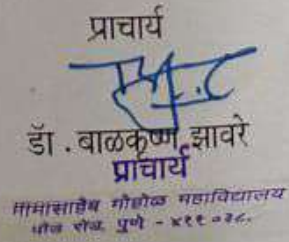 प्राचार्य
डॉ . बाळकृष्ण झावरे
प्राचार्य
मामासाहेब मोहोळ महाविद्यालय
पौड रोड, पुणे - ४११ ०३८.